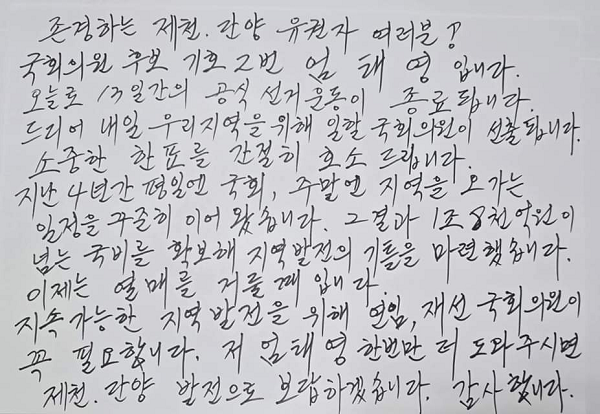 존경하는 제천.단양 유권자 여러분!
국회의원 후보 기호2번 엄태영입니다.
오늘로 13일간의 공식 선거운동이 종료됩니다.
드디어 내일 우리지역을위해 일할 국회의원이 선출됩니다.
소중한 한표를 간절히 호소 드립니다.
지난 4년간 평일엔 국회, 주말엔 지역을 오가는
일정을 꾸준히 이어 왔습니다. 그결과 1조8천억원이
넘는 국비를 확보해 지역발전의 기틀을 마련했습니다.
이제는 열매를 거둘때입니다.
지속가능한 지역발전을 위해 연임, 재선 국회의원이
꼭 필요합니다. 저 엄태영 한번만 더 도와주시면
제천.단양 발전으로 보답하겠습니다. 감사합니다.